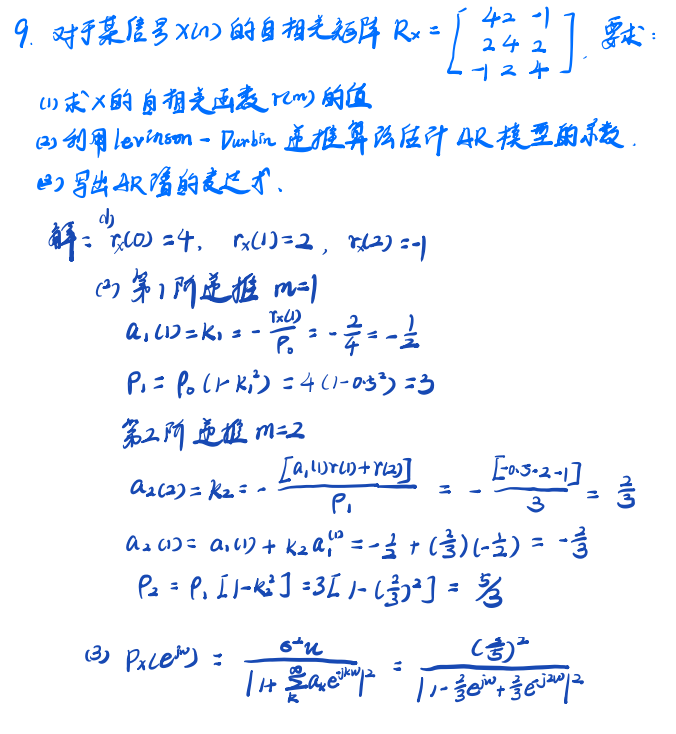 9. 对于某信号X(n)的自相关矩阵 Rx = [4 2 -1
2 4 2
-1 2 4]. 要求:
(1) 求X的自相关函数r(m)的值
(2) 利用levinson-Durbin递推算法估计AR模型的系数.
(3) 写出AR谱的表达式.
解: (1) rx(0)=4, rx(1)=2, rx(2)=-1
(2) 第1阶递推 m=1
a₁(1)=k₁=-rx(1)/ρ₀=-2/4=-1/2
ρ₁=ρ₀(1-k₁²)=4(1-0.5²)=3
第2阶递推 m=2
a₂(2)=k₂=-[a₁(1)r(1)+r(2)]/ρ₁ = -[-0.5·2-1]/3 = 2/3
a₂(1)=a₁(1)+k₂a₁(1)=-1/2+(2/3)(-1/2)=-2/3
ρ₂=ρ₁[1-k₂²]=3[1-(2/3)²]=5/3
(3) Px(e^jω)=σ²u/|1+∑_k^∞ a_k e^-jkω|²=()²/|1-2/3e^jω+2/3e^-j2ω|²